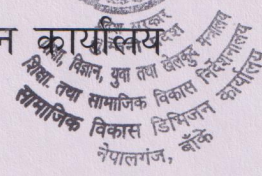 न कार्यालय
सरकार
शिक्षा, विज्ञान, युवा तथा खेलकुद मन्त्रालय
शिक्षा तथा सामाजिक विकास निर्देशनालय
सामाजिक विकास डिभिजन कार्यालय
नेपालगंज, बाँके